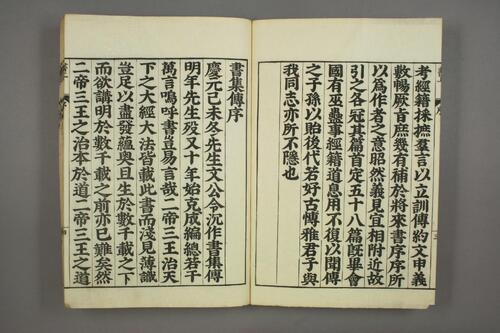 考經籍採摭羣言以立訓傳約文申義
敷暢厥旨庶幾有補於將來書序序所
以為作者之意昭然義見宜相附近故
引之各冠其篇首定五十八篇既畢會
國有巫蠱事經籍道息用不復以聞傳
之子孫以貽後代若好古愽雅君子與
我同志亦所不隱也
書集傳序
慶元己未冬先生文公令沈作書集傳
明年先生歿又十年始克成編總若干
萬言嗚呼書豈易言哉二帝三王治天
下之大經大法皆載此書而淺見薄識
豈足以盡發蘊奧且生於數千載之下
而欲講明於數千載之前亦已難矣然
二帝三王之治本於道二帝三王之道